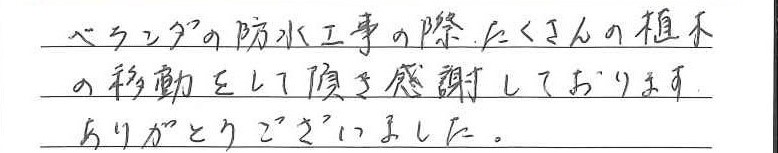 ベランダの防水工事の際、たくさんの植木
の移動をして頂き感謝しております。
ありがとうございました。